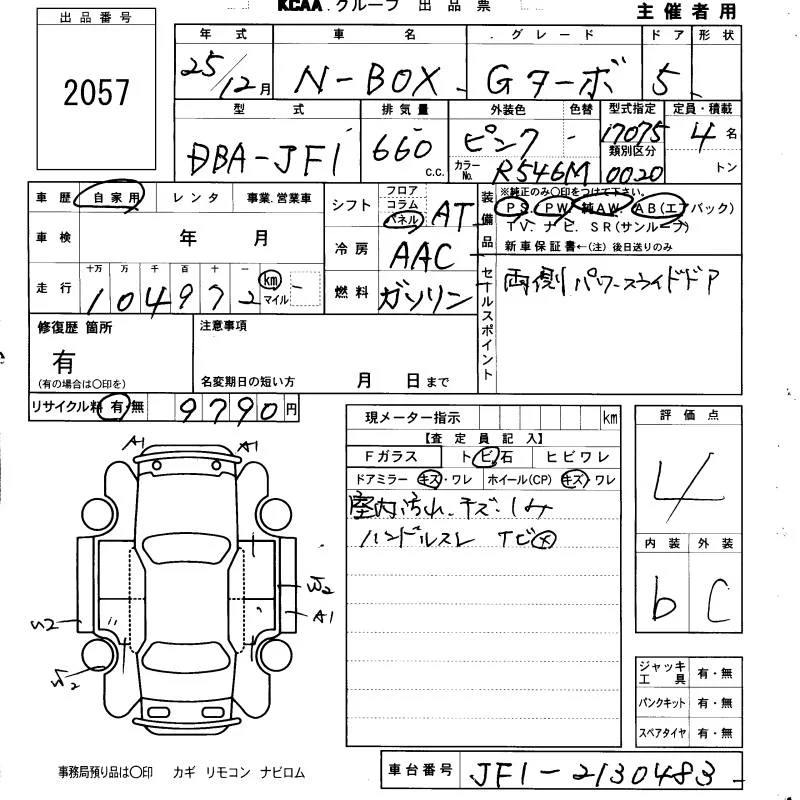 KCAA.グループ 出品票
主催者用
出品番号
2057
年式 車名 グレード ドア 形状
25/12月 N-BOX Gターボ 5
型式 排気量 外装色 色替 型式指定 定員・積載
DBA-JF1 660 c.c. ピンク - 17075 4名
カラーNo. R546M 類別区分 0020 トン
車歴 自家用 レンタ 事業.営業車
シフト フロア コラム パネル AT
装備品 ※純正のみ〇印をつけて下さい。
PS. PW. 純AW. AB(エアバック)
TV. ナビ. SR(サンルーフ)
新車保証書←(注)後日送りのみ
車検 年 月
冷房 AAC
走行 十万 万 千 百 十 一
104972 km マイル
燃料 ガソリン
セールスポイント 両側パワースライドドア
修復歴 箇所
有
(有の場合は〇印を)
注意事項
名変期日の短い方 月 日まで
リサイクル料 有・無 9790円
現メーター指示 km
【査定員記入】
Fガラス トビ石 ヒビワレ
ドアミラー キズ・ワレ ホイール(CP) キズ・ワレ
室内汚れ.キズ.しみ
ハンドルスレ
評価点
4
内装 外装
b C
A1 A1
W2
A1
U2
W2
ジャッキ工具 有・無
パンクキット 有・無
スペアタイヤ 有・無
事務局預り品は〇印 カギ リモコン ナビロム
車台番号 JF1-2130483